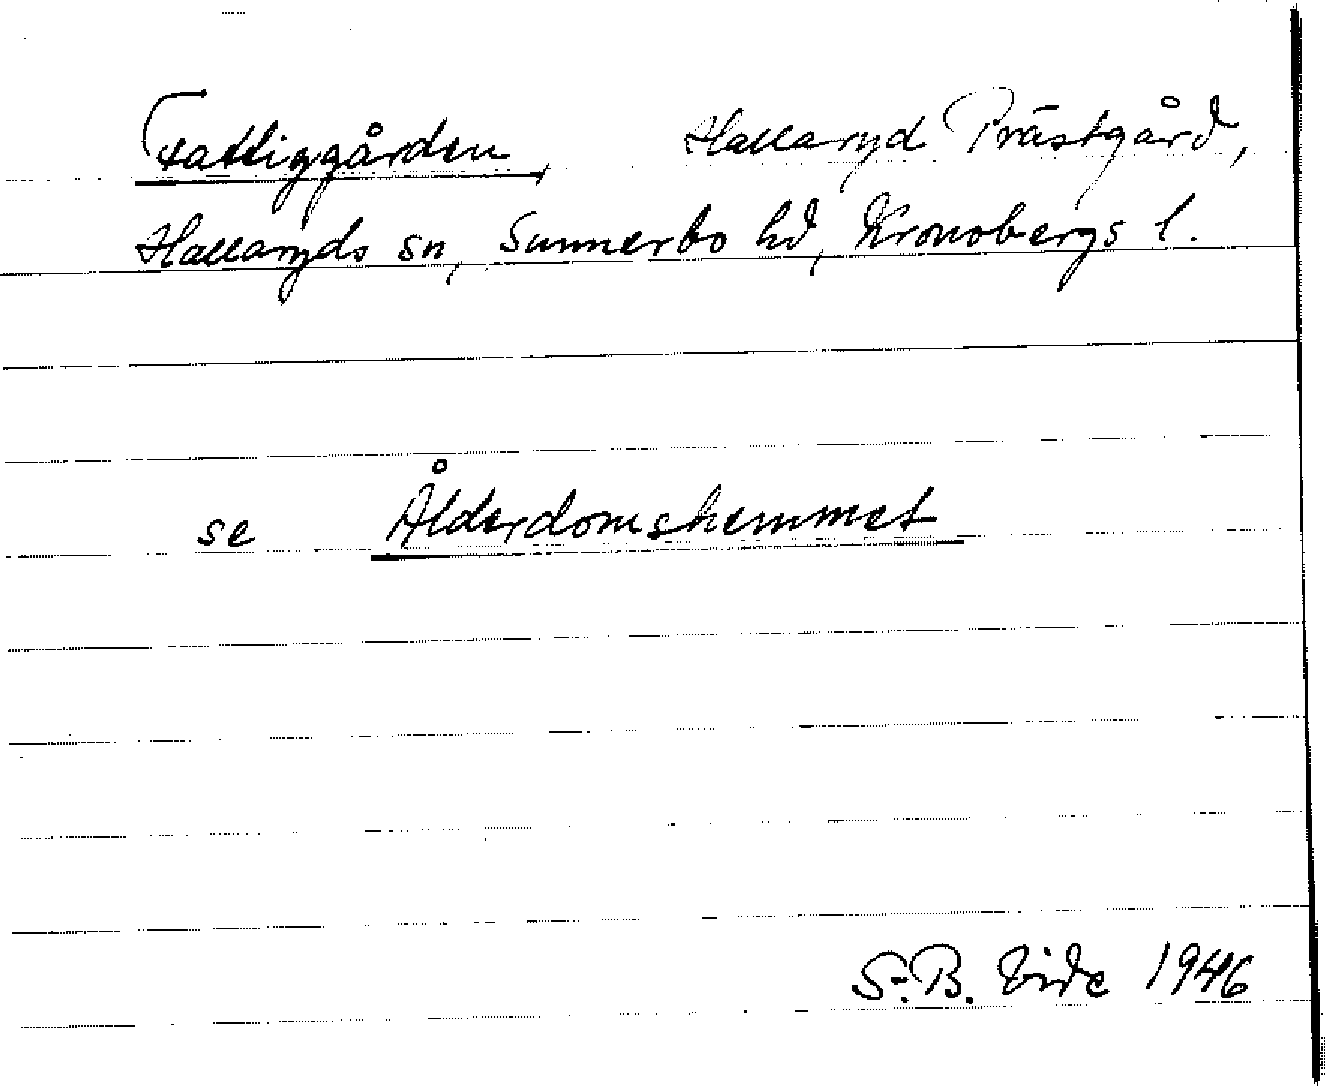 Fattiggården, Hallaryd Prästgård,
Hallaryds sn, Sunnerbo hd, Kronobergs l.
se Ålderdomshemmet
S.-B. Vide 1946